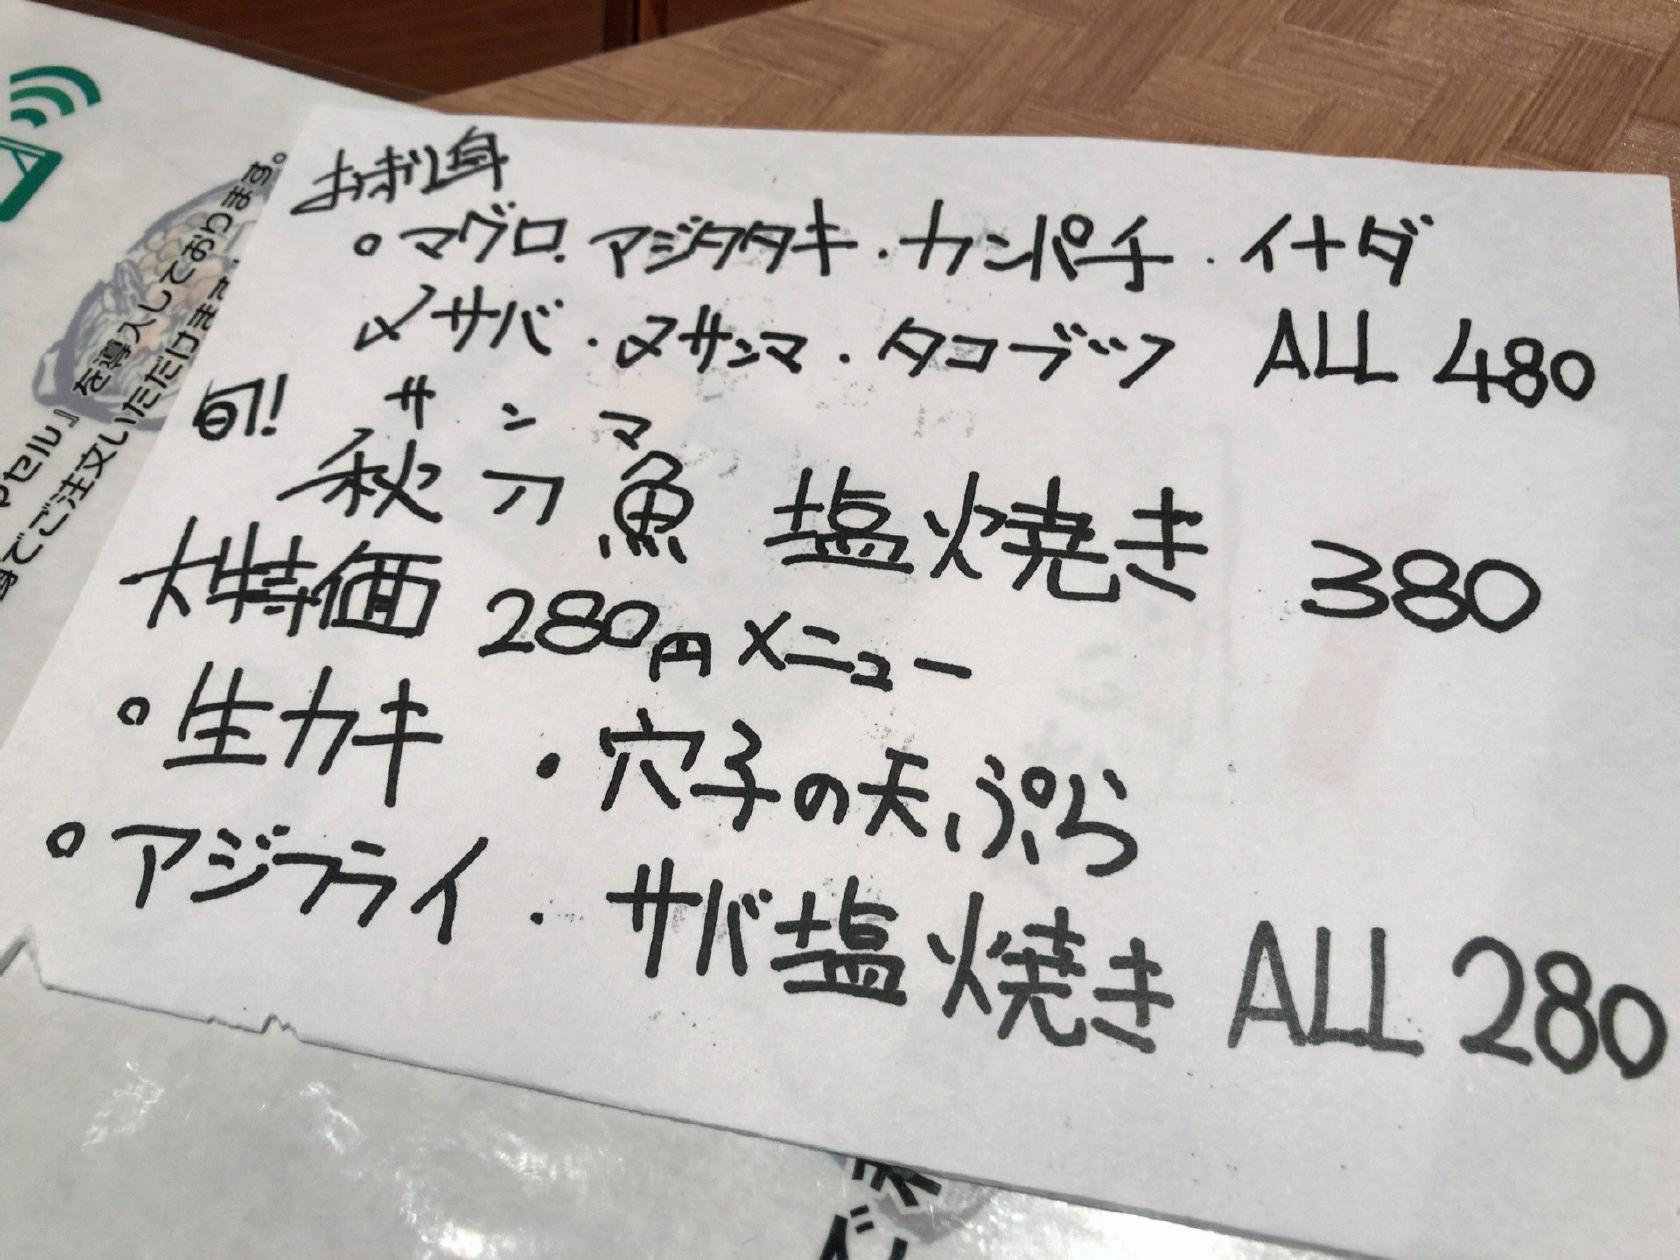 おさしり身
○マグロ.アジタタキ・カンパチ・イナダ
〆サバ・〆サンマ・タコブツ ALL 480
旬! サンマ
秋刀魚 塩焼き 380
大特価 280円メニュー
○生カキ ・穴子の天ぷら
○アジフライ・サバ塩焼き ALL 280
セル』を導入しております。
でご注文いただけます